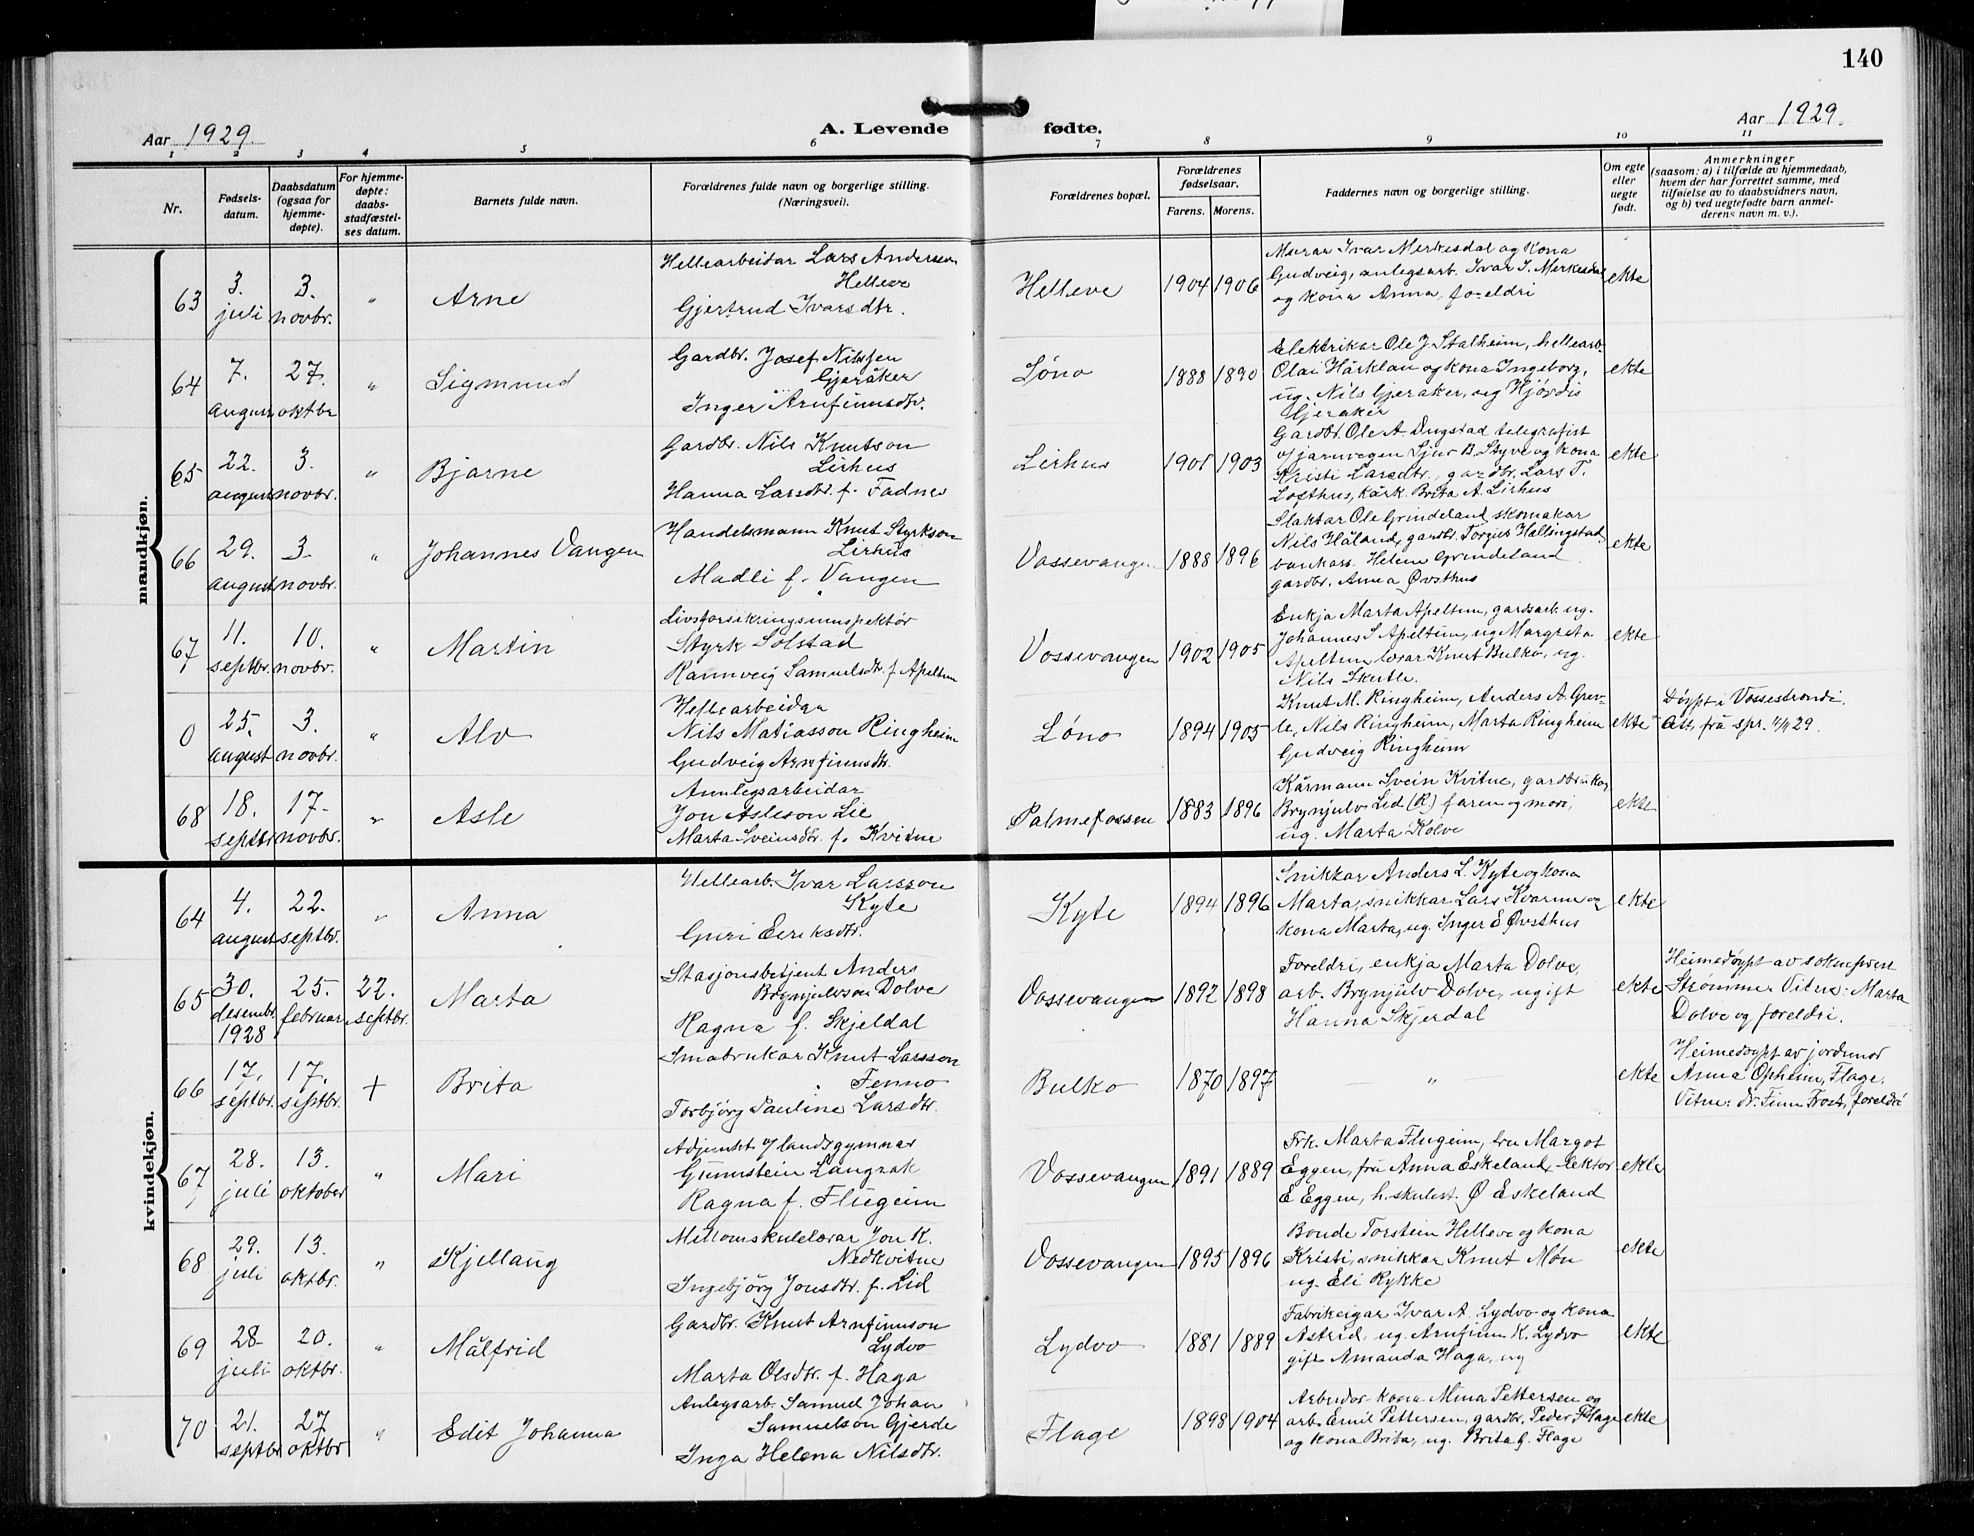 140
Aar 1929.
A. Levende fødte.
Aar 1929.
1 2 3 4 5 6 7 8 9 10 11
Nr.
Fødsels-
datum.
Daabsdatum
(ogsaa for
hjemme-
døpte).
For hjemme-
døpte:
daabs-
stadfæstel-
ses datum.
Barnets fulde navn.
Forældrenes fulde navn og borgerlige stilling.
(Næringsvei).
Forældrenes bopæl.
Forældrenes
fødselsaar.
Farens. Morens.
Faddernes navn og borgerlige stilling.
Om egte
eller
uegte
født.
Anmerkninger
(saasom: a) i tilfælde av hjemmedaab,
hvem der har forrettet samme, med
tilføielse av to daabsvidners navn,
og b) ved uegtefødte barn anmel-
derens navn m. v.).
mandkjøn.
63
3.
juli
3.
novbr.
"
Arne
Hellearbeidar Lars Andersen
Helleve
Gjertrud Ivarsdtr.
Helleve
1904 1906
Murar Ivar Merkesdal og kona
Gudveig, anlegsarb. Ivar I. Merkesdal
og kona Anna, foreldri
ekte
64
7.
august
27.
oktbr
"
Sigmund
Gardbr. Josef Nilssen
Gjeråker
Inger Arnfinnsdtr.
Løno
1888 1890
Elektrikar Ole J. Stalheim, hellearb.
Olai Hårklau og kona Ingeborg,
ug. Nils Gjeråker, ug Hjørdis
Gjeraker
ekte
65
22.
august
3.
novbr.
"
Bjarne
Gardbr. Nils Knutson
Lirhus
Hanna Larsdtr. f. Fadnes
Lirhus
1901 1903
Gardbr. Ole A. Dugstad telegrafist
v/jarnvegen Sjur B. Styve og kona
Kristi Larsdtr., gardbr. Lars T.
Lofthus, kårk. Brita A. Lirhus
ekte
66
29.
august
3.
novbr.
"
Johannes Vangen
Handelsmann Knut Styrkson
Lirhus
Madli f. Vangen
Vossevangen
1888 1896
Slaktar Ole Grindeland skomakar
Nils Håland, gardbr. Torgils Hallingstad,
bankass. Helene Grindeland
gardbr. Anna Øvsthus
ekte
67
11.
septbr.
10.
novbr.
"
Martin
Livsforsikringsinnspektør
Styrk Solstad
Rannveig Samuelsdtr. f. Apeltun
Vossevangen
1902 1905
Enkja Marta Apeltun, gardsarb. ug.
Johannes S Apeltun, ug Margreta
Apeltun lærar Knut Bulko, ug.
Nils Skutle.
ekte
0
25.
august
3.
novbr.
"
Alv
Hellearbeidar
Nils Matiasson Ringheim
Gudveig Arnfinnsdtr.
Løno
1894 1905
Knut M. Ringheim, Anders A. Grev-
le, Nils Ringheim, Marta Ringheim
Gudveig Ringheim
ekte
Døypt i Vossestrondi.
Att. frå spr. 11/11 29.
68
18.
septbr
17.
novbr.
"
Asle
Annlegsarbeidar
Jon Asleson Lie
Marta Sveinsdtr. f. Kvitne
Palmefossen
1883 1896
Kårmann Svein Kvitne, gardbruker
Brynjulv Lid (R.) faren og mori,
ug. Marta Kolve
ekte
kvindekjøn.
64
4.
august
22.
septbr.
"
Anna
Hellearb. Ivar Larsson
Kyte
Guri Eiriksdtr.
Kyte
1894 1896
Snikkar Anders L. Kyte og kona
Marta, snikkar Lars Kvarme og
kona Marta, ug. Inger E Øvsthus
ekte
65
30.
desembr.
1928
25.
februar
22.
septbr.
Marta
Stasjonsbetjent Anders
Brynjulvson Dolve
Ragna f. Skjeldal
Vossevangen
1892 1898
Foreldri, enkja Marta Dolve,
arb. Brynjulv Dolve, ugift
Hanna Skjerdal
ekte
Heimedøypt av sokneprest
Strømme. Vitne: Marta
Dolve og foreldri.
66
17.
septbr.
17.
septbr.
+
Brita
Småbrukar Knut Larsson
Fenno
Torbjörg Pauline Larsdtr.
Bulko
1870 1897
— " —
ekte
Heimedøypt av jordmor
Anna Opheim, Flage.
Vitne: Dr. Finn Frost, foreldri
67
28.
juli
13.
oktober
"
Mari
Adjunkt v/ landsgymnas
Gunnstein Langråk
Ragna f. Flugeim
Vossevangen
1891 1889
Frk. Marta Flugeim, fru Margot
Eggen, frü Anna Eskeland, lektor
E Eggen, h. skulest. Ø Eskeland
ekte
68
29.
juli
13.
oktbr.
"
Kjellaug
Mellomskulelærar Jon K.
Nedkvitne
Ingebjörg Jonsdtr. f. Lid
Vossevangen
1895 1896
Bonde Torstein Helleve og kona
Kristi, snikkar Knut Møn
ug. Eli Rykke
ekte
69
28
juli
20.
oktbr.
"
Målfrid
Gardbr. Knut Arnfinnson
Lydvo
Marta Olsdtr. f. Haga
Lydvo
1881 1889
Fabrikeigar Ivar A. Lydvo og kona
Astrid, ug. Arnfinn K. Lydvo
gift Amanda Haga, ug
ekte
70
21.
septbr
27
oktbr
"
Edit Johanna
Anlegsarb. Samuel Johan
Samuelson Gjerde
Inga Helena Nilsdtr.
Flage
1898 1904
Arbeidar kona Mina Pettersen og
arb. Emil Pettersen, gardbr. Peder Flage
og kona Brita, ug. Brita G. Flage
ekte